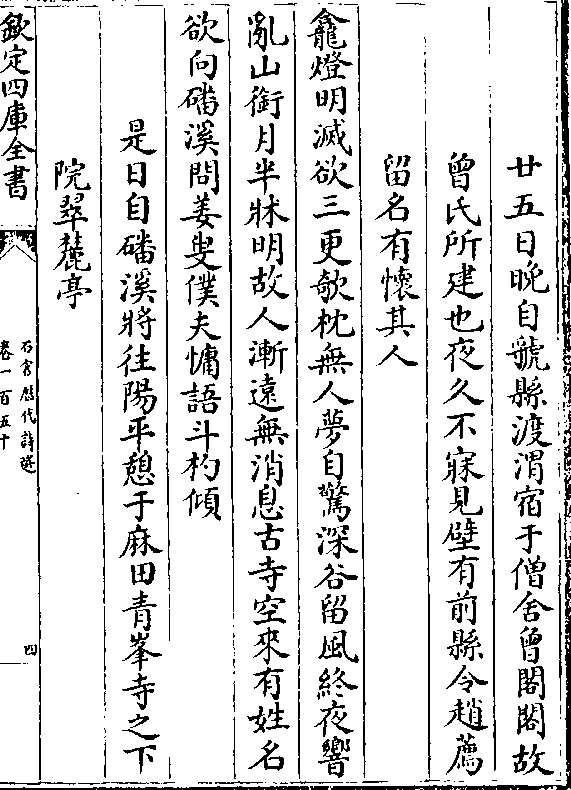 廿五日晚自虢縣渡渭宿于僧舍曾閣閣故
曾氏所建也夜久不寐見壁有前縣令趙薦
留名有懷其人
龕燈明滅欲三更欹枕無人夢自驚深谷留風終夜響
亂山銜月半牀明故人漸遠無消息古寺空來有姓名
欲向磻溪問姜叟僕夫慵語斗杓傾
是日自磻溪將往陽平憩于麻田青峯寺之下
院翠麓亭
欽定四庫全書
石倉歷代詩選
卷一百五十
四